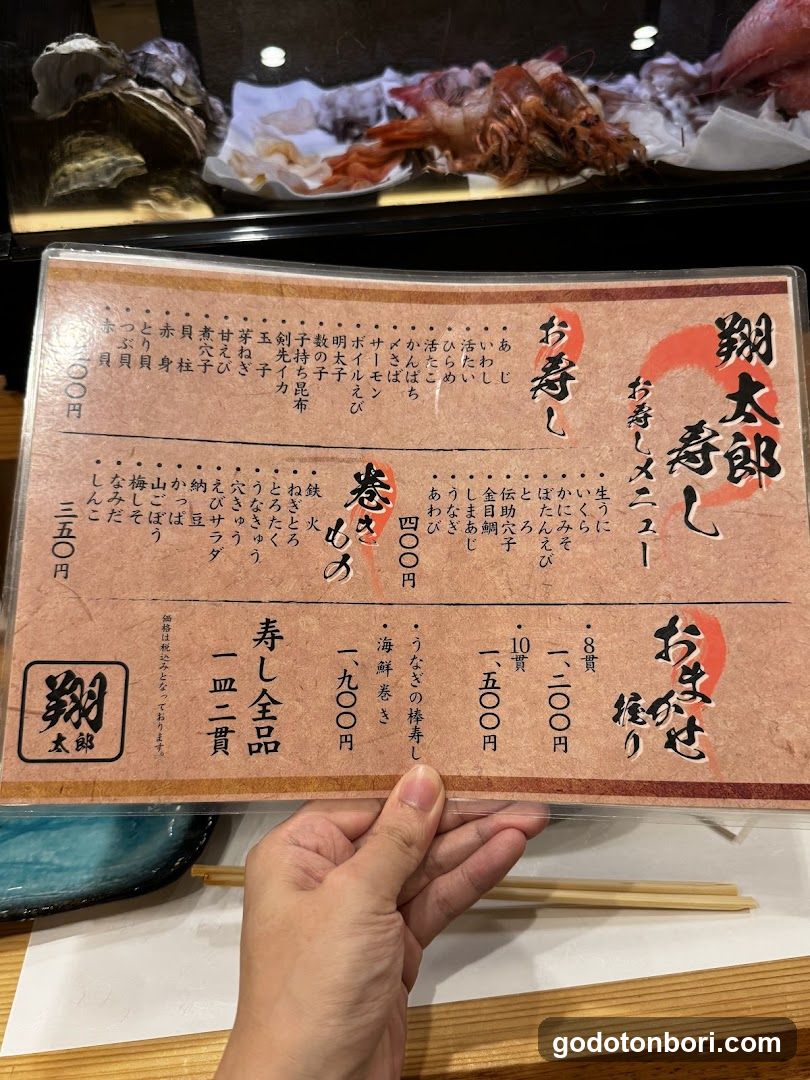 翔太郎
寿し
お寿しメニュー
お寿し
・あじ
・いわし
・活たい
・ひらめ
・活たこ
・かんぱち
・〆さば
・サーモン
・ボイルえび
・明太子
・数の子
・子持ち昆布
・剣先イカ
・玉子
・芽ねぎ
・甘えび
・煮穴子
・貝柱
・赤身
・とり貝
・つぶ貝
・赤貝
〇〇円
・生うに
・いくら
・かにみそ
・ぼたんえび
・とろ
・伝助穴子
・金目鯛
・しまあじ
・うなぎ
・あわび
四〇〇円
巻きもの
・鉄火
・ねぎとろ
・とろたく
・うなきゅう
・穴きゅう
・えびサラダ
・納豆
・かっぱ
・山ごぼう
・梅しそ
・なみだ
・しんこ
三五〇円
おまかせ握り
・8貫
一、二〇〇円
・10貫
一、五〇〇円
・うなぎの棒寿し
・海鮮巻き
一、九〇〇円
寿し全品
一皿二貫
価格は税込みとなっております。
翔
太郎
godotonbori.com